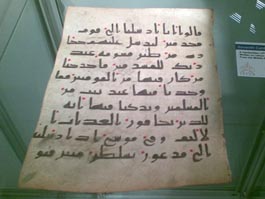 قالوا انا ارسلنا الى قوم
مجرمين لنرسل عليهم حجا
رة من طين مسومة عند
ربك للمسرفين فاخرجنا
من كان فيها من المومنين فما
وجدنا فيها غير بيت من
المسلمين وتركنا فيها اية
للذين يخافون العذاب ا
لاليم وفي موسى اذ ارسلنه
الى فرعون بسلطن مبين فتو